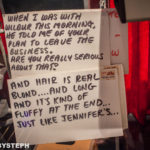 WHEN I WAS WITH
WILBUR THIS MORNING,
HE TOLD ME OF YOUR
PLAN TO LEAVE THE
BUSINESS.
ARE YOU REALLY SERIOUS
ABOUT THAT?
AND HAIR IS REAL
BLOND....AND LONG
AND IT'S KIND OF
FLUFFY AT THE END...
JUST LIKE JENNIFER'S...
BYSTEPH